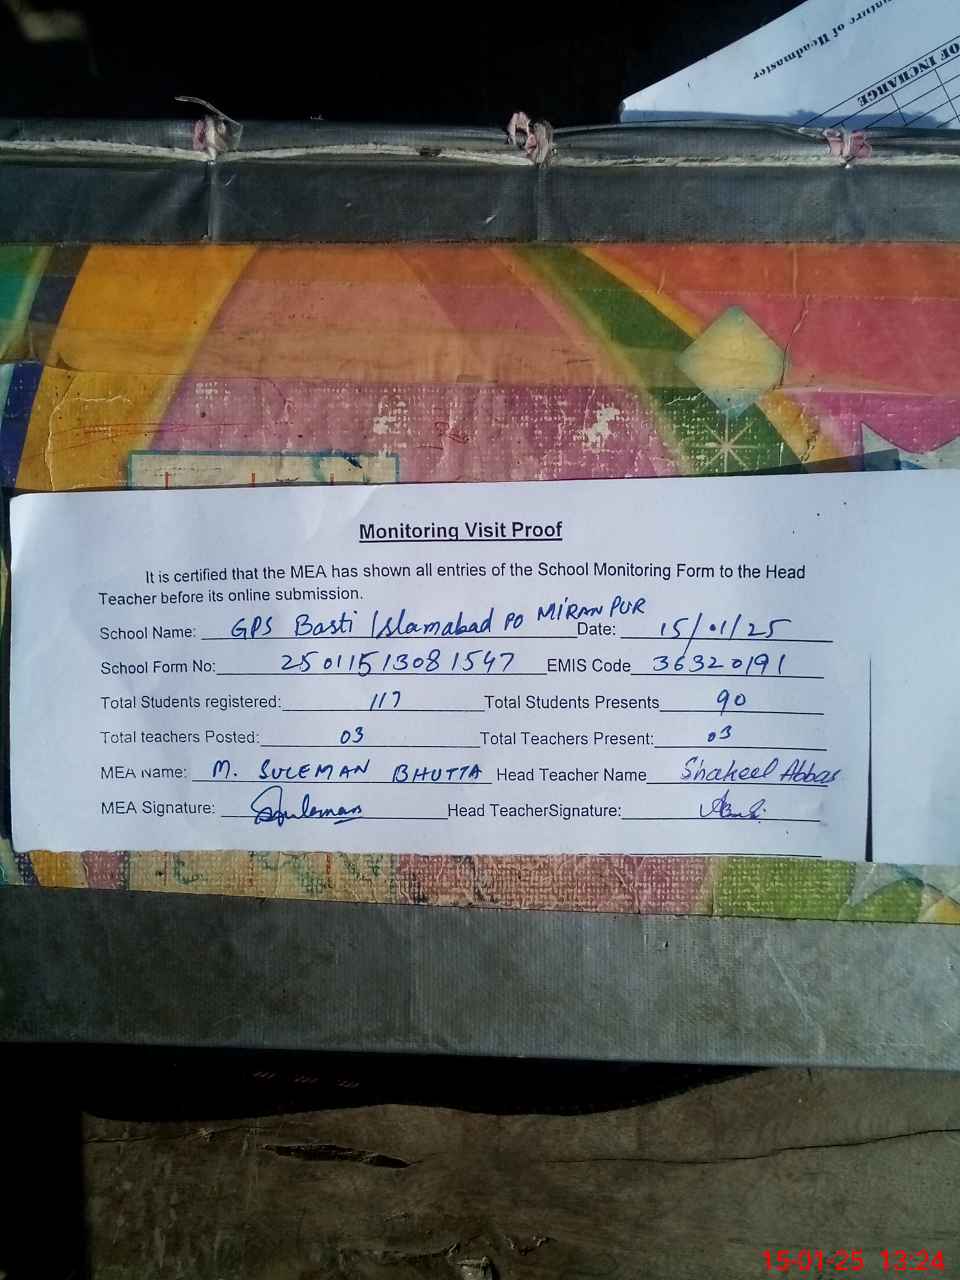 nature of Headmaster
OF INCHARGE
Monitoring Visit Proof
It is certified that the MEA has shown all entries of the School Monitoring Form to the Head
Teacher before its online submission.
School Name: GPS Basti Islamabad PO MIRAN PUR Date: 15/01/25
School Form No: 25011513081547 EMIS Code 36320191
Total Students registered: 117 Total Students Presents 90
Total teachers Posted: 03 Total Teachers Present: 03
MEA Name: M. SULEMAN BHUTTA Head Teacher Name Shakeel Abbas
MEA Signature: Suleman Head TeacherSignature:
15-01-25 13:24